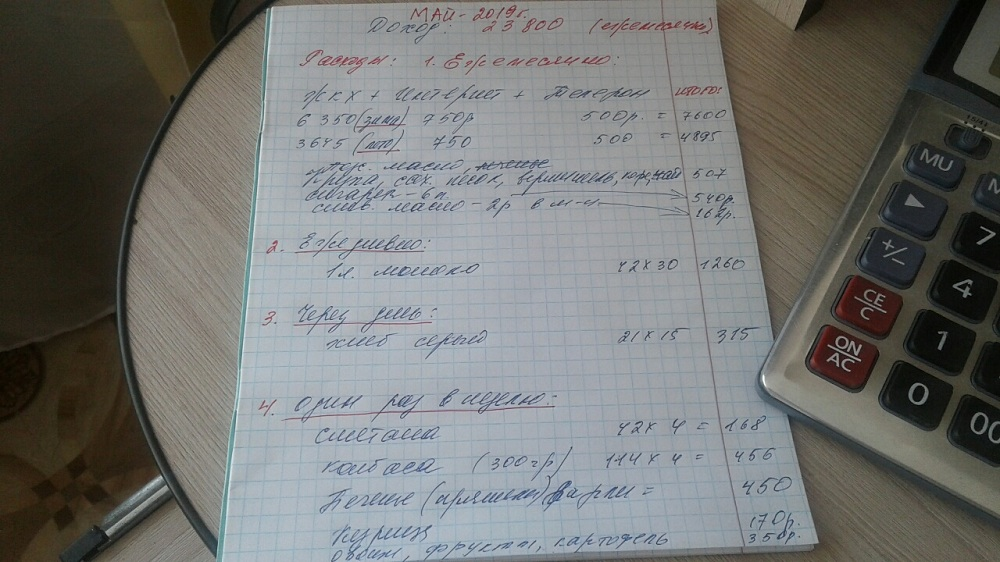 МАЙ - 2019г.
Доход: 23 800 (ежемесячно)
Расходы: 1. Ежемесячно:
ЖКХ + Интернет + Телефон ИТОГО:
6 350 (зима) 750р 500р. = 7600
3645 (лето) 750 500 = 4895
масло,
Крупа, сах. песок, вермишель, кофе, чай 507
сигарет - 6п 540р.
слив. масло - 2р в м-ц 162р.
2. Ежедневно:
1л. молоко 42х30 1260
3. Через день:
хлеб серый 21х15 315
4. Один раз в неделю:
сметана 42х 4 = 168
колбаса (300гр) 114х4 = 456
Печенье (пряники) = 450
Курица 170р.
овощи, фрукты, картофель 350р.
MU
►
+/−
CE/C
ON/AC
7
4
1
0
00